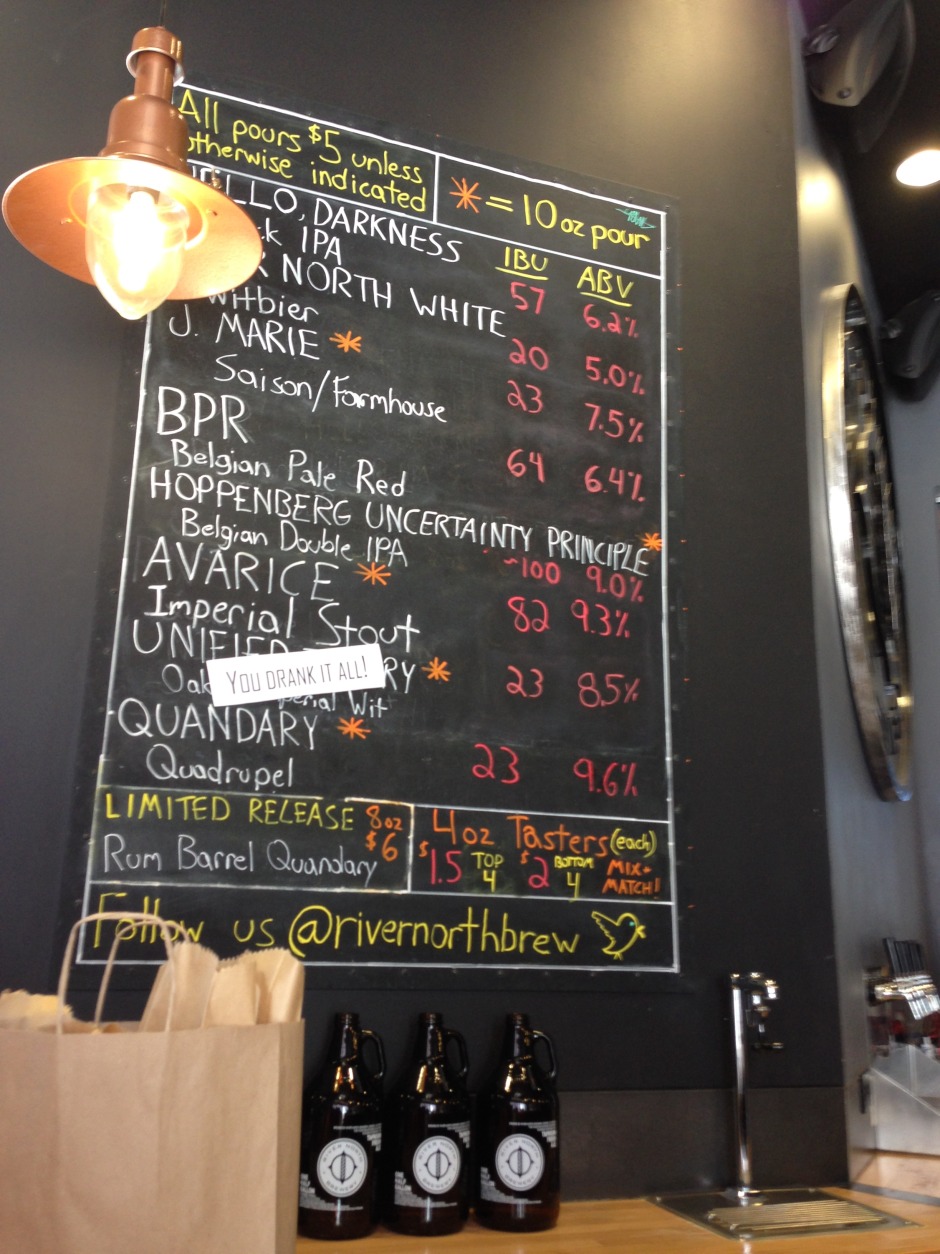 All pours $5 unless
otherwise indicated
* = 10 oz pour
IBU ABV
LLO, DARKNESS
ck IPA 57 6.2%
NORTH WHITE
Witbier 20 5.0%
J. MARIE *
Saison/Farmhouse 23 7.5%
BPR
Belgian Pale Red 64 6.4%
HOPPENBERG UNCERTAINTY PRINCIPLE *
Belgian Double IPA ~100 9.0%
AVARICE *
Imperial Stout 82 9.3%
UNIFIED RY *
YOU DRANK IT ALL!
Oak perial Wit 23 8.5%
QUANDARY *
Quadrupel 23 9.6%
LIMITED RELEASE 8oz
$6
Rum Barrel Quandary
4oz Tasters (each)
$1.5 TOP 4 $2 BOTTOM 4 MIX + MATCH!
Follow us @rivernorthbrew
RIVER NORTH
BREWERY